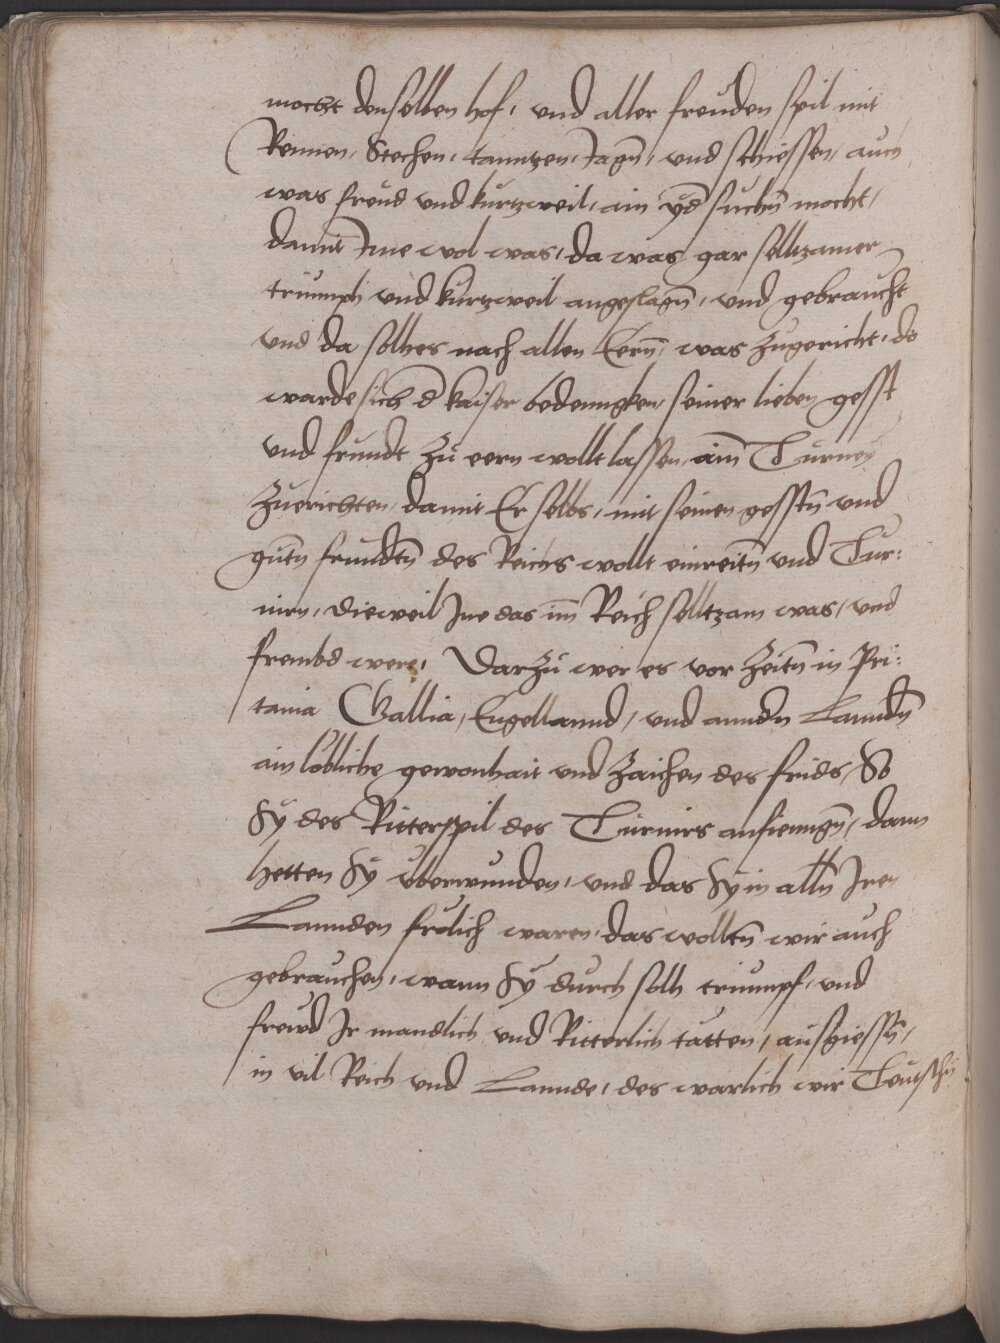 mocht denselben hof, und aller freuden spil mit
Rennen, Stechen, tanntzen, Jagn̄, und schiessen, auch
was freud und kurtzweil, ain yd̄ suchn̄ mocht,
damit Ime wol was, da was gar selltzamer
triumph und kurtzweil angeslagn̄, und gebraucht
und da solhes nach allen Eern̄, was zugericht, do
warde sich d̄ kaiser bedenngken, seiner lieben gesst
und frundt zu eern wollt lassen, ain̄ Turney
zuerichten, damit Er selbs, mit seinen gesstn̄ und
gutn̄ frundtn̄ des Reichs wollt einreitn̄ und Tur:
nirn, dieweil Ine das im̄ Reich selltzam was, und
frembd were, Darzu wer es vor zeitn̄ in Pri:
tania Gallia, Engellannd, und anndn̄ Lanndn̄
ain lobliche gewonhait und zaichen des frids, So
Sy des Ritterspil des Turnirs anfienngn̄, dann
hetten Sy uberwunden, und das Sy in alln̄ Iren
Lannden frolich waren, das wolltn̄ wir auch
gebrauchen, wann Sy durch solh triumpf, und
freud Ir manlich und Ritterlich tatten, ausgiessn̄,
in vil Reich und Lannde, des warlich wir Teutschn̄